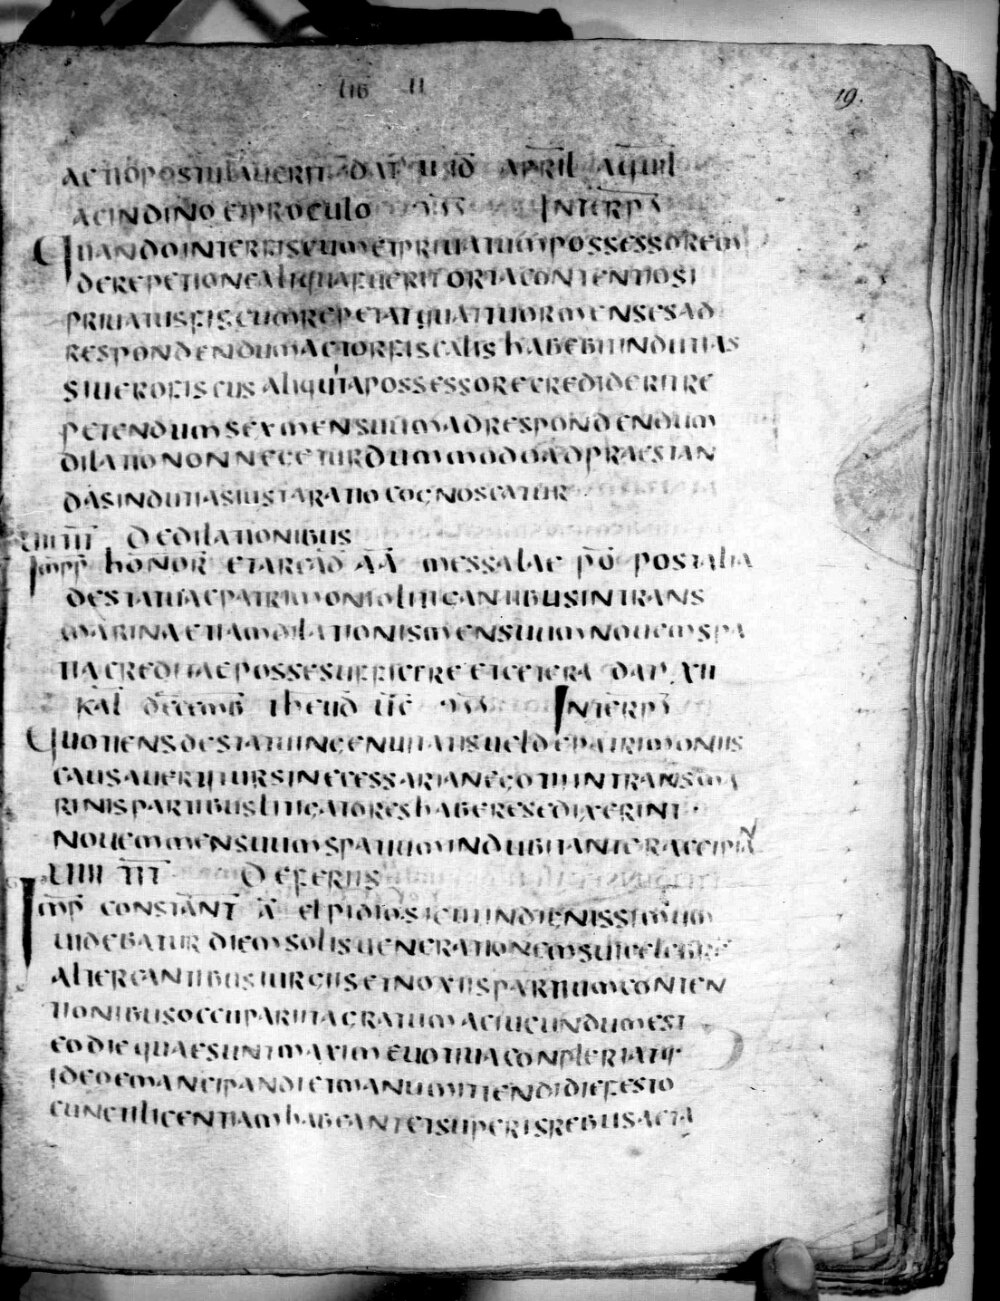 LIB II
19.
ACTIO POSTULAVERIT DAT II ID APRIL AQUIL
ACINDINO ET PROCULO CONSS INTERPT
QUANDO INTER FISCUM ET PRIVATUM POSSESSOREM
DE REPETITIONE ALIQUA FUERIT ORTA CONTENTIO SI
PRIVATUS FISCUM REPETAT QUATTUOR MENSES AD
RESPONDENDUM ACTOR FISCALIS HABEBIT INDUTIAS
SI VERO FISCUS ALIQUIT A POSSESSORE CREDIDERIT RE
PETENDUM SEX MENSUUM AD RESPONDENDUM
DILATIO NON NEGETUR DUMMODO AD PRAESTAN
DAS INDUTIAS IUSTA RATIO COGNOSCATUR
VIII III DE DILATIONIBUS
IMPP HONOR ET ARCAD AA MESSALAE PO POST ALIA
DE STATU AC PATRIMONIO LITIGANTIBUS IN TRANS
MARINA ETIAM DILATIONIS MENSUUM NOVEM SPA
TIA CREDI HAEC POSSE SUFFICERE ET CETERA DAT XII
KAL DECEMB THEUD UC CONSS INTERPT
QUOTIENS DE STATU INGENUITATIS VEL DE PATRIMONIIS
CAUS AUERTITUR SI NECESSARIA NEGOTIIUIN TRANSMA
RINIS PARTIBUS LITIGATORES HABERE SE DIXERINT
NOVEM MENSUUM SPATIUM INDUBITANTER ACCIPIAN
VIIII III DE FERIIS
IMP CONSTANT A ELPIDIO SICUT INDIGNISSIMUM
VIDEBATUR DIEM SOLIS VENERATIONEM SUI CELEBRE
ALTERCANTIBUS IURGIIS ET NOXIIS PARTIUM CONTEN
TIONIBUS OCCUPARI ITA GRATUM AC IUCUNDUM EST
EO DIE QUAE SUNT MAXIME VOTIVA CONPLERI ATQ
IDEO EMANCIPANDI ET MANUMITTENDI DIE FESTO
CUNCTI LICENTIAM HABEANT ET SUPER IS REBUS ACTA